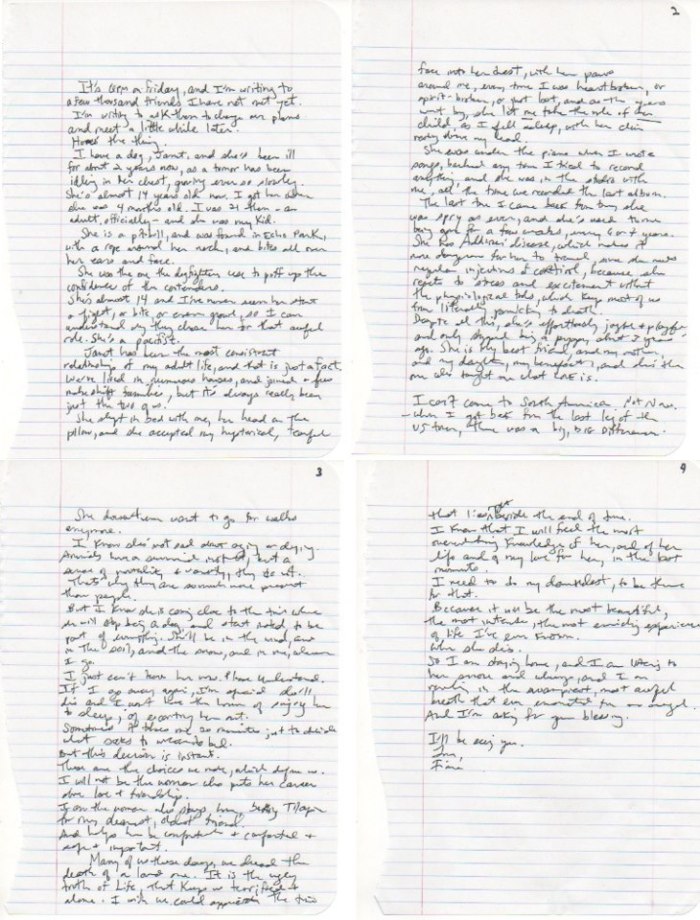 It's 6PM on Friday, and I'm writing to
a few thousand friends I have not met yet.
I'm writing to ask them to change our plans
and meet a little while later.
Here's the thing.
I have a dog, Janet, and she's been ill
for about 2 years now, as a tumor has been
idling in her chest, growing ever so slowly.
She's almost 14 years old now. I got her when
she was 4 months old. I was 21 then – an
adult, officially – and she was my kid.
She is a pitbull, and was found in Echo Park,
with a rope around her neck, and bites all over
her ears and face.
She was the one the dogfighters use to puff up the
confidence of the contenders.
She's almost 14 and I've never seen her start
a fight, or bite, or even growl, so I can
understand why they chose her for that awful
role. She's a pacifist.
Janet has been the most consistent
relationship of my adult life, and that is just a fact.
We've lived in numerous houses, and joined a few
makeshift families, but it's always really been
just the two of us.
She slept in bed with me, her head on the
pillow, and she accepted my hysterical, tearful
2
face into her chest, with her paws
around me, every time I was heartbroken, or
spirit-broken, or just lost, and as the years
went by, she let me take the role of her
child as I fell asleep, with her chin
resting above my head.
She was under the piano when I wrote
songs, barked any time I tried to record
anything, and she was in the studio with
me, all the time we recorded the last album.
The last time I came back from tour, she
was spry as ever, and she's used to me
being gone for a few weeks, every 6 or 7 years.
She has Addison's disease, which makes it
more dangerous for her to travel, since she needs
regular injections of cortisol, because she
reacts to stress and excitement without
the physiological tools which keep most of us
from literally panicking to death.
Despite all this, she's effortlessly joyful & playful
and only stopped being a puppy about 3 years
ago. She is my best friend, and my mother,
and my daughter, my benefactor, and she's the
one who taught me what LOVE is.
I can't come to South America. Not Now.
– When I got back from the last leg of the
US tour, there was a big, BIG Difference.
3
She doesn't even want to go for walks
anymore.
I know she's not sad about aging or dying.
Animals have a survival instinct, but a
sense of mortality & vanity, they do not.
That's why they are so much more present
than people.
But I know she is coming close to the time where
she will stop being a dog and start instead to be
part of everything. She'll be in the wind, and
in the soil, and the snow, and in me, wherever
I go.
I just can't leave her now. Please understand.
If I go away again, I'm afraid she'll
die and I won't have the honor of singing her
to sleep, of escorting her out.
Sometimes it takes me 20 minutes just to decide
what socks to wear to bed.
But this decision is instant.
These are the choices we make, which define us.
I will not be the woman who puts her career
above love & friendship.
I am the woman who stays home, baking Tilapia
for my dearest, oldest friend.
And helps her be comfortable & comforted &
safe & important.
Many of us these days, we dread the
death of a loved one. It is the ugly
truth of Life, that Keeps us terrified &
alone. I wish we could appreciate the time
4
that lies right beside the end of time.
I know that I will feel the most
overwhelming knowledge of her, and of her
life and of my love for her, in the last
moments.
I need to do my damnedest, to be there
for that.
Because it will be the most beautiful,
the most intense, the most enriching experience
of life I've ever known.
When she dies.
So I am staying home, and I am listening to
her snore and wheeze, and I am
revelling in the swampiest, most awful
breath that ever emanated from an angel.
And I'm asking for your blessing.
I'll be seeing you.
Love,
Fiona